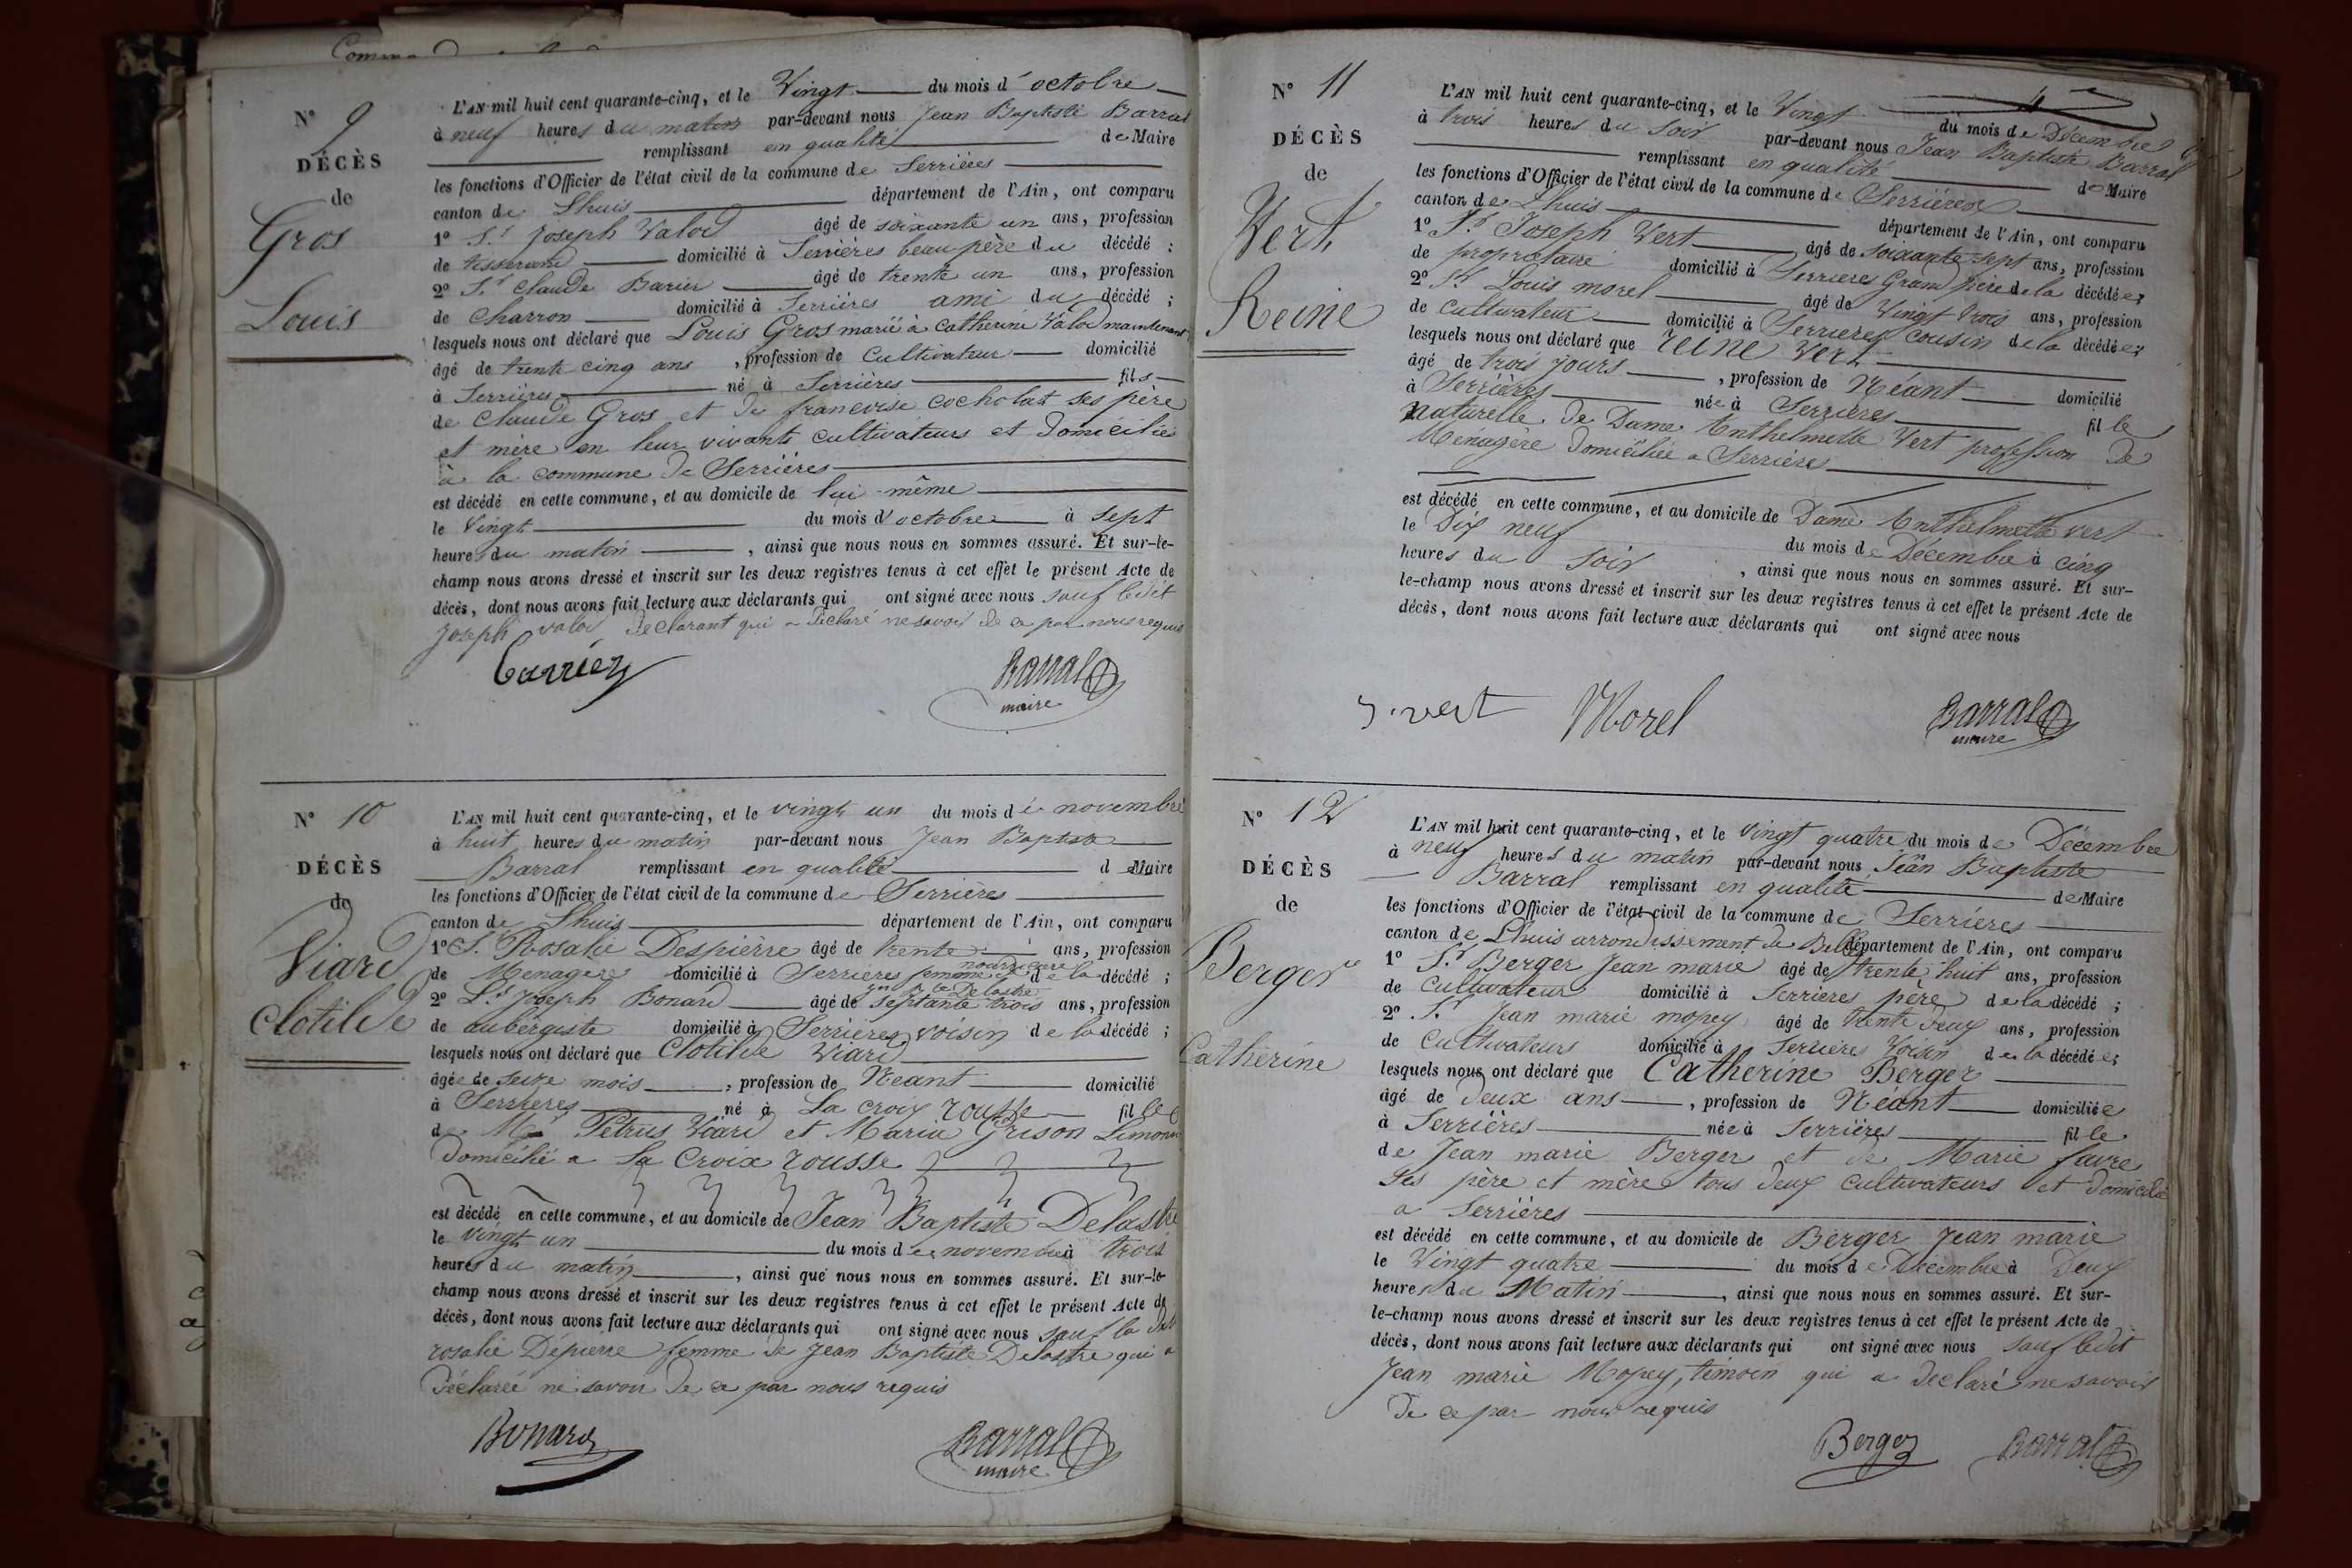 Comm
N° 9
DÉCÈS
de
Gros
Louis
L'AN mil huit cent quarante-cinq, et le Vingt du mois d'octobre
à neuf heures du matin par-devant nous Jean Baptiste Barral
remplissant en qualité de Maire
les fonctions d'Officier de l'état civil de la commune de Serrières
canton de Lhuis département de l'Ain, ont comparu
1° Sr Joseph Valod âgé de soixante un ans, profession
de tisserand domicilié à Serrières beau père du décédé ;
2° Sr Claude Barier âgé de trente un ans, profession
de Charron domicilié à Serrières ami du décédé ;
lesquels nous ont déclaré que Louis Gros marié à Catherine Valod maintenant
âgé de trente cinq ans , profession de Cultivateur domicilié
à Serrières né à Serrières fils
de Claude Gros et de francoise Cocholat ses père
et mère en leur vivants cultivateurs et domiciliés
à la commune de Serrières
est décédé en cette commune, et au domicile de lui-même
le Vingt du mois d'octobre à sept
heures du matin , ainsi que nous nous en sommes assuré. Et sur-le-
champ nous avons dressé et inscrit sur les deux registres tenus à cet effet le présent Acte de
décès, dont nous avons fait lecture aux déclarants qui ont signé avec nous sauf ledit
Joseph valod déclarant qui a déclaré ne savoir de ce par nous requis
Carrier
Barral
maire
N° 10
DÉCÈS
de
Viard
Clotilde
L'AN mil huit cent quarante-cinq, et le vingt un du mois de novembre
à huit heures du matin par-devant nous Jean Baptiste
Barral remplissant en qualité d Maire
les fonctions d'Officier de l'état civil de la commune de Serrières
canton de Lhuis département de l'Ain, ont comparu
1° S. Rosalie Despièrre âgé de trente ans, profession
de Menagere domicilié à Serrières femme de la décédé ;
2° Sr Joseph Bonard âgé de septante trois ans, profession
de aubergiste domicilié à Serrières voisin de la décédé ;
lesquels nous ont déclaré que Clotilde Viard
âgée de seize mois , profession de Néant domicilié
à Serrières né à La croix rousse fille
de Mr Pétrus Viard et Maria Grison Limona
domicilié a La Croix rousse
est décédé en cette commune, et au domicile de Jean Baptiste Delastre
le Vingt un du mois de novembre à trois
heures du matin , ainsi que nous nous en sommes assuré. Et sur-le-
champ nous avons dressé et inscrit sur les deux registres tenus à cet effet le présent Acte de
décès, dont nous avons fait lecture aux déclarants qui ont signé avec nous sauf la dite
rosalie Dépierre femme de Jean Baptiste Delastre qui a
déclaréé ne savoir de ce par nous requis
Bonard
Barral
maire
N° 11
DÉCÈS
de
Vert
Reine
L'AN mil huit cent quarante-cinq, et le Vingt du mois de Décembre
à trois heures du soir par-devant nous Jean Baptiste Barral
remplissant en qualité de Maire
les fonctions d'Officier de l'état civil de la commune de Serrières
canton de Lhuis département de l'Ain, ont comparu
1° Sr Joseph Vert âgé de soixante sept ans, profession
de propriétaire domicilié à Serrières Grand père de la décédée ;
2° Sr Louis morel âgé de Vingt trois ans, profession
de Cultivateur domicilié à Serrières cousin de la décédée ;
lesquels nous ont déclaré que reine Vert
âgé de trois jours , profession de Néant domicilié
à Serrières née à Serrières fille
naturelle de Dame Anthelmette Vert profession de
Ménagère domiciliée a Serrières
est décédé en cette commune, et au domicile de Dame Anthelmette vert
le Dix neuf du mois de Décembre à cinq
heures du soir , ainsi que nous nous en sommes assuré. Et sur-
le-champ nous avons dressé et inscrit sur les deux registres tenus à cet effet le présent Acte de
décès, dont nous avons fait lecture aux déclarants qui ont signé avec nous
J. vert
Morel
Barral
maire
N° 12
DÉCÈS
de
Berger
Catherine
L'AN mil huit cent quarante-cinq, et le Vingt quatre du mois de Décembre
à neuf heures du matin par-devant nous Jean Baptiste
Barral remplissant en qualité de Maire
les fonctions d'Officier de l'état civil de la commune de Serrières
canton de Lhuis arrondissement de Belley département de l'Ain, ont comparu
1° Sr Berger Jean marie âgé de trente huit ans, profession
de Cultivateur domicilié à Serrières père de la décédé ;
2° Sr Jean marie mopey âgé de trente deux ans, profession
de Cultivateurs domicilié à Serrières Voisin de la décédée ;
lesquels nous ont déclaré que Catherine Berger
âgé de deux ans , profession de Néant domiciliée
à Serrières née à Serrières fille
de Jean marie Berger et de Marie favre
ses père et mère tous deux cultivateurs et domicilié
a Serrières
est décédé en cette commune, et au domicile de Berger Jean marie
le Vingt quatre du mois de Décembre à Deux
heures du Matin , ainsi que nous nous en sommes assuré. Et sur-
le-champ nous avons dressé et inscrit sur les deux registres tenus à cet effet le présent Acte de
décès, dont nous avons fait lecture aux déclarants qui ont signé avec nous sauf ledit
Jean marie Mopey, témoin qui a déclaré ne savoir
de ce par nous requis
Berger
Barral